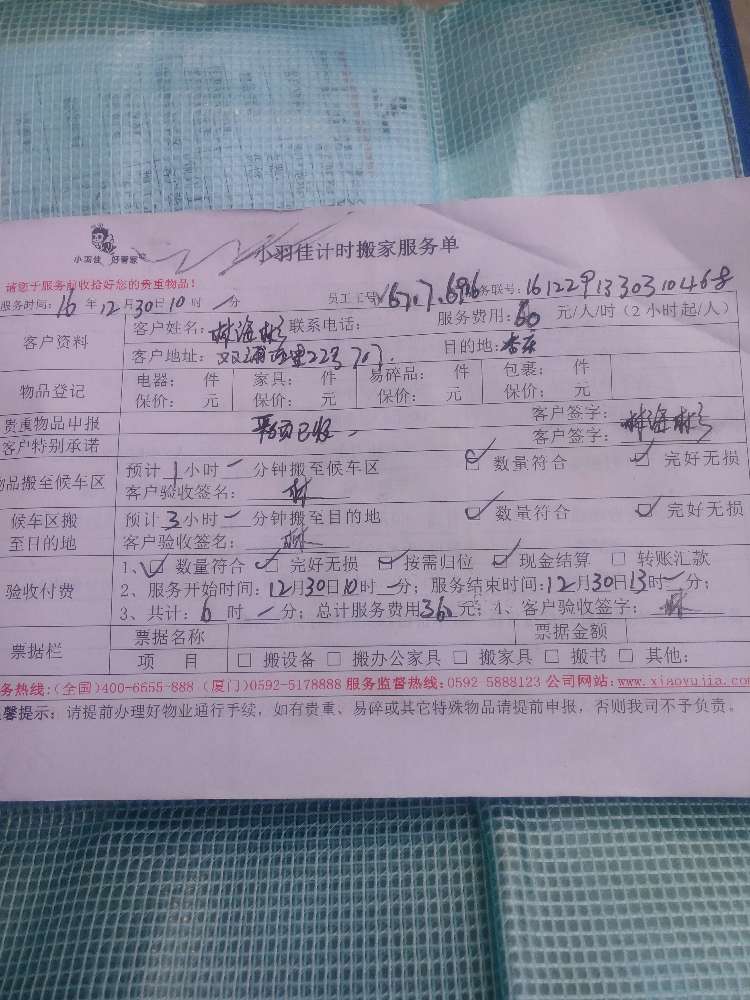 小羽佳 好管家
小羽佳计时搬家服务单
请您于服务前收拾好您的贵重物品!
服务时间: 16 年 12 月 30 日 10 时 一 分 员工工号 务联号: 1612291330310468
客户资料 客户姓名: 林海彬 联系电话: 服务费用: 60 元/人/时 (2小时起/人)
客户地址: 目的地: 杏东
物品登记 电器: 件 家具: 件 易碎品: 件 包裹: 件
保价: 元 保价: 元 保价: 元 保价: 元
贵重物品申报 客户签字: 林海彬
客户特别承诺 客户签字:
物品搬至候车区 预计 1 小时 一 分钟搬至候车区 ☑ 数量符合 ☑ 完好无损
客户验收签名: 林
候车区搬 预计 3 小时 一 分钟搬至目的地 ☑ 数量符合 ☑ 完好无损
至目的地 客户验收签名: 林
验收付费 1、☑ 数量符合 ☑ 完好无损 ☑ 按需归位 ☑ 现金结算 □ 转账汇款
2、服务开始时间: 12月30日10时 一 分; 服务结束时间: 12月30日13时 一 分;
3、共计: 6 时 一 分; 总计服务费用 360 元; 4、客户验收签字: 林
票据栏 票据名称 票据金额
项 目 □ 搬设备 □ 搬办公家具 □ 搬家具 □ 搬书 □ 其他:
务热线:(全国)400-6655-888 (厦门)0592-5178888 服务监督热线:0592-5888123 公司网站:www.xiaoyujia.com
馨提示: 请提前办理好物业通行手续,如有贵重、易碎或其它特殊物品请提前申报,否则我司不予负责。